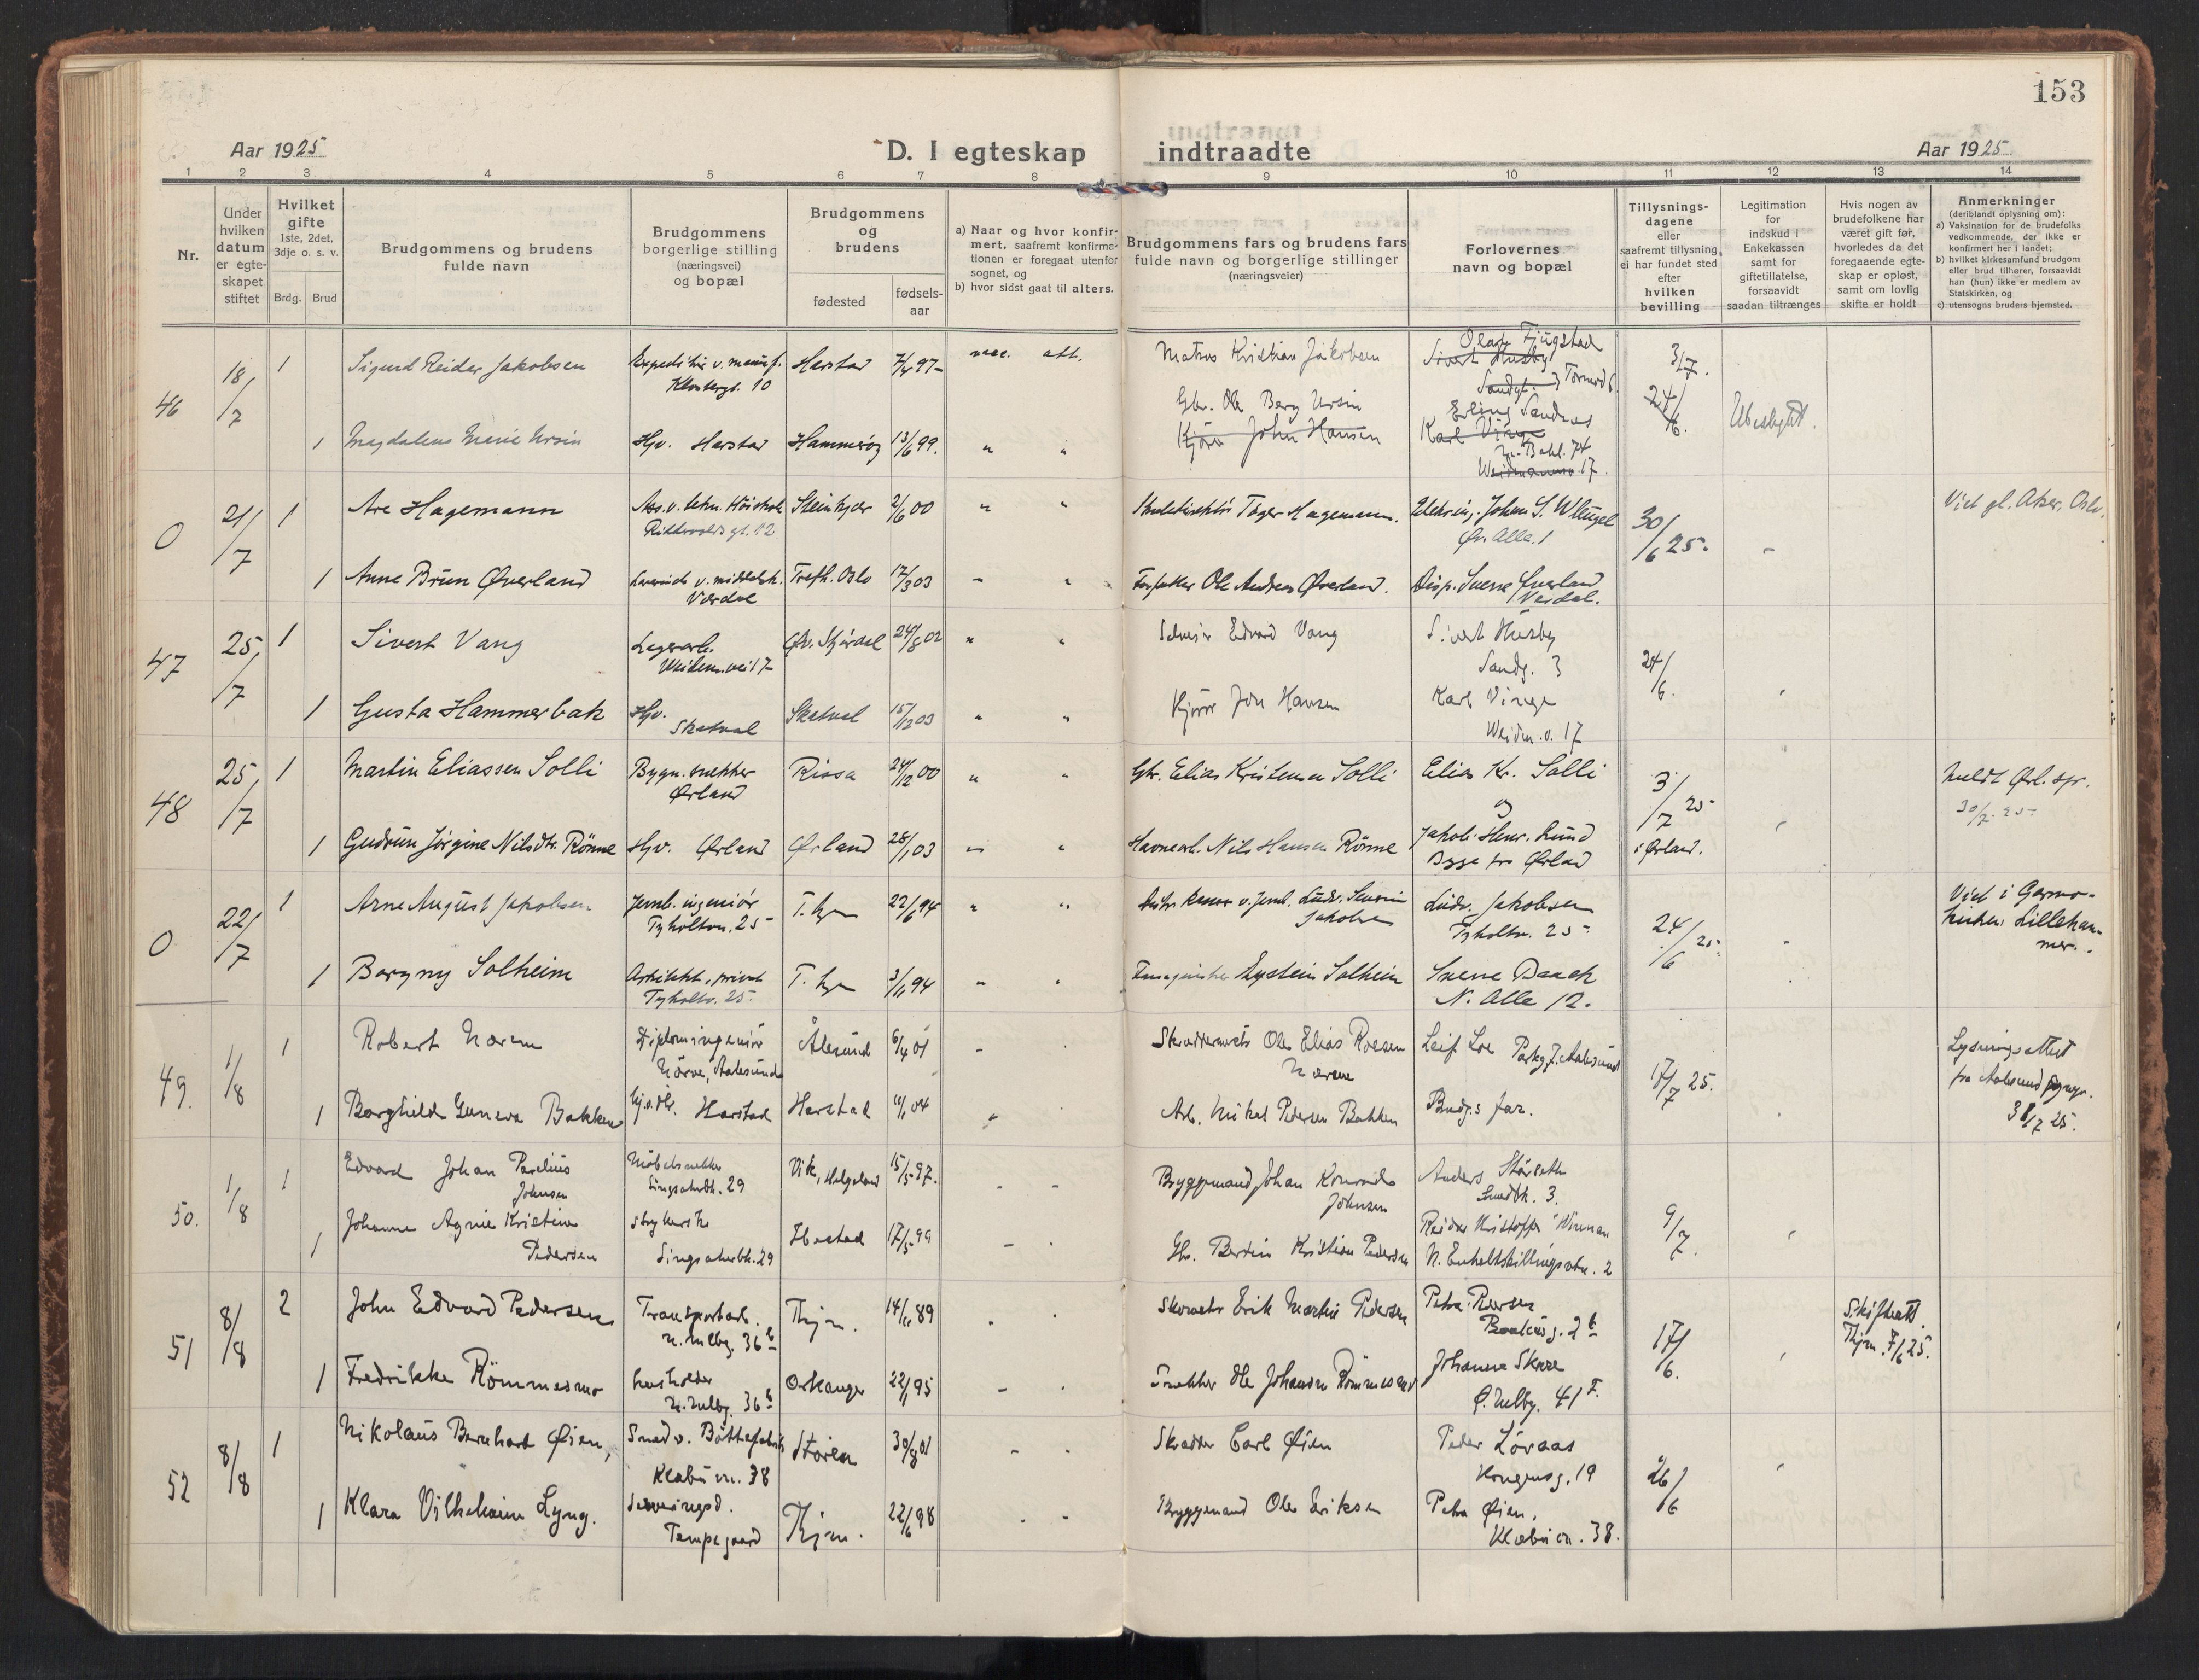 153
Aar 1925
D. I egteskap indtraadte
Aar 1925
1 2 3 4 5 6 7 8 9 10 11 12 13 14
Nr.
Under hvilken datum er egteskapet stiftet
Hvilket gifte
1ste, 2det, 3dje o. s. v.
Brdg. Brud
Brudgommens og brudens
fulde navn
Brudgommens
borgerlige stilling
(næringsvei)
og bopæl
Brudgommens
og
brudens
fødested
fødsels-
aar
a) Naar og hvor konfir-
mert, saafremt konfirma-
tionen er foregaat utenfor
sognet, og
b) hvor sidst gaat til alters.
Brudgommens fars og brudens fars
fulde navn og borgerlige stillinger
(næringsveier)
Forlovernes
navn og bopæl
Tillysnings-
dagene
eller
saafremt tillysning
ei har fundet sted
efter
hvilken
bevilling
Legitimation
for
indskud i
Enkekassen
samt for
giftetillatelse,
forsaavidt
saadan tiltrænges
Hvis nogen av
brudefolkene har
været gift før,
hvorledes da det
foregaaende egte-
skap er opløst,
samt om lovlig
skifte er holdt
Anmerkninger
(deriblandt oplysning om):
a) Vaksination for de brudefolks
vedkommende, der ikke er
konfirmert her i landet;
b) hvilket kirkesamfund brudgom
eller brud tilhører, forsaavidt
han (hun) ikke er medlem av
Statskirken, og
c) utensogns bruders hjemsted.
46 18/7 1 Sigurd Reidar Jakobsen Harstad 97 Matros Kristian Jakobsen Olaf Fjugstad 3/7.
Klostergt. 10 Sivert Husby
Sandgt. 3
Gbr. Ole Berg Ursin Erling Sandnes 24/6. Ubeskyttet.
1 Magdalena Marie Ursin Hjv. Harstad Hammerøy 13/6 99. Kjører John Hansen Karl Vinge
17.
0 21/7 1 Are Hagemann Ass. v. tekn. Høiskole Steinkjer 2/6 00 Hagemann. Johan S. Wleügel 30/6 25. Viet gl. Aker, Oslo.
gt. 12 Øv. Alle. 1
1 Anne Brün Øverland v. middelsk. Trefh. Oslo 17/3 03 Forfatter Ole Andreas Øverland. Disp. Sverre Øverland
Verdal Verdal.
47 25/7 1 Sivert Vang Lagerarb. Øv. Stjørdal 24/8 02 Edvard Vang Sivert Husby 24/6.
Sandg. 3
1 Gusta Hammerbak Hjv. Skatval 15/12 03 Kjører Jon Hansen Karl Vinge
Skatval Weidm.v. 17
48 25/7 1 Martin Eliassen Solli Bygn. snekker Rissa 24/12 00 Gbr. Elias Kristensen Solli Elias Kr. Solli 3/7 25 Meldt Ørl. spr.
Ørland og 30/7. 25
1 Gudrün Jörgine Nilsdtr. Rönne Hjv. Ørland Ørland 28/1 03 Havnearb. Nils Hansen Rönne Jakob Henr. Lund i Ørland.
Ørland
0 22/7 1 Arne August Jakobsen. Jernb. ingeniör T.hjem 22/6 94 Jakobsen Lüdv. Jakobsen 24/6 25. Viet i Garmo-
Tyholtv. 25 Tyholtv. 25 kirken Lilleham-
mer.
1 Borgny Solheim Arkitekt, privat T.hjem 3/11 94 Eystein Solheim Sverre Baack
Tyholtv. 25 N. Alle 12.
49. 1/8 1 Robert Nærem Diplomingeniör Ålesund 6/4 01 Ole Elias Roesen Leif Loe Aalesund 17/7 25. Lysningsattest
Nörve, Aalesund Nærem fra Aalesund
1 Borghild Guneva Bakken Harstad Harstad 04 Arb. Mikal Pedersen Bakken Brudg.s far. 31/7 25.
50. 1/8 1 Edvard Johan Parelius Möbelsnekker Vik, Helgeland 15/5 97. Bryggemand Johan Konrad Anders Störseth 9/7.
Johnsen Singsakerbk. 29 Johnsen 3.
1 Johanne Agnie Kristine strykerske Ibestad 17/5 99 Gbr. Kristian Pedersen
Pedersen Singsakerbk. 29 N. Enkeltskillingsvtn. 2
51 8/8 2 John Edvard Pedersen Transportarb. Thjm. 14/11 89 Erik Martin Pedersen Petra Pedersen 17/6. Skifteatt.
36 b 2 b Thjm. 7/6 25.
1 Fredrikke Römmesmo husholder Orkanger 22/1 95 Snekker Ole Johansen Römmesmo Johanne Skare
36 b 41 F.
52 8/8 1 Nikolaüs Bernhart Øien, Smed v. Böttefabrik Støren 30/8 01 Skrædder Carl Øien Peder Lövaas 26/6
Klæbuvn. 38 Kongensg. 19
1 Klara Vilhelmine Lyng. Thjm. 22/6 98 Bryggemand Ole Eriksen Petra Øien,
Tempegaard Klæbuvn. 38.